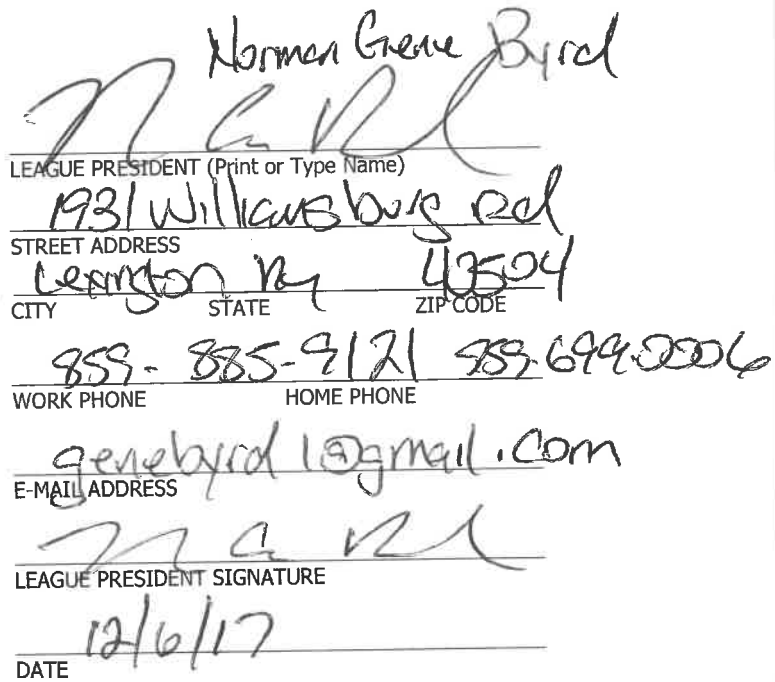 Norman Gene Byrd
LEAGUE PRESIDENT (Print or Type Name)
1931 Williamsburg Rd
STREET ADDRESS
Lexington Ky 40504
CITY STATE ZIP CODE
859-885-9121 859-699-0006
WORK PHONE HOME PHONE
genebyrd1@gmail.com
E-MAIL ADDRESS
LEAGUE PRESIDENT SIGNATURE
12/6/17
DATE